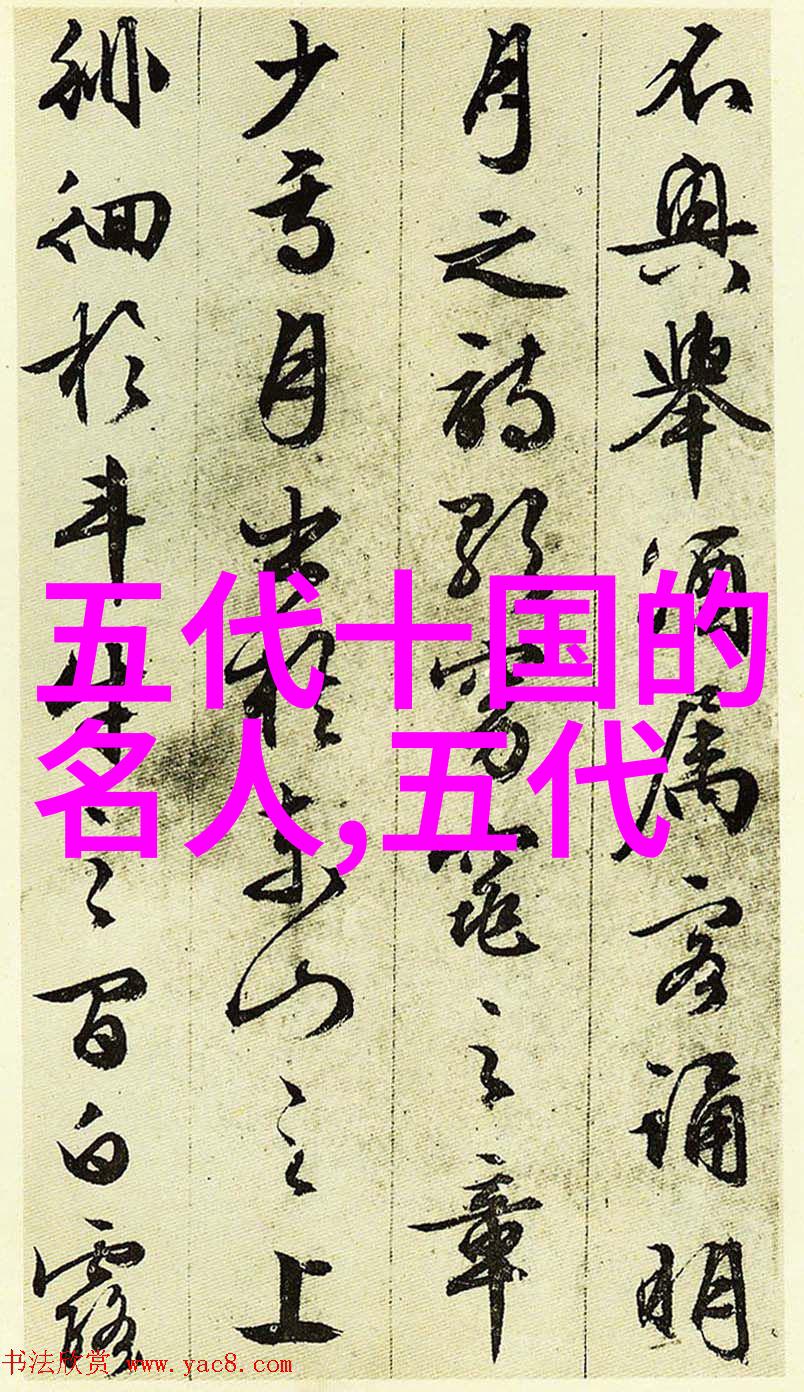 不興舉酒属客誦明
月之詩歌窈窕之章
少焉月出於東山之上
徘徊於斗牛之間白露
五代十国的
名人,五代
书法欣赏 www.yac8.com